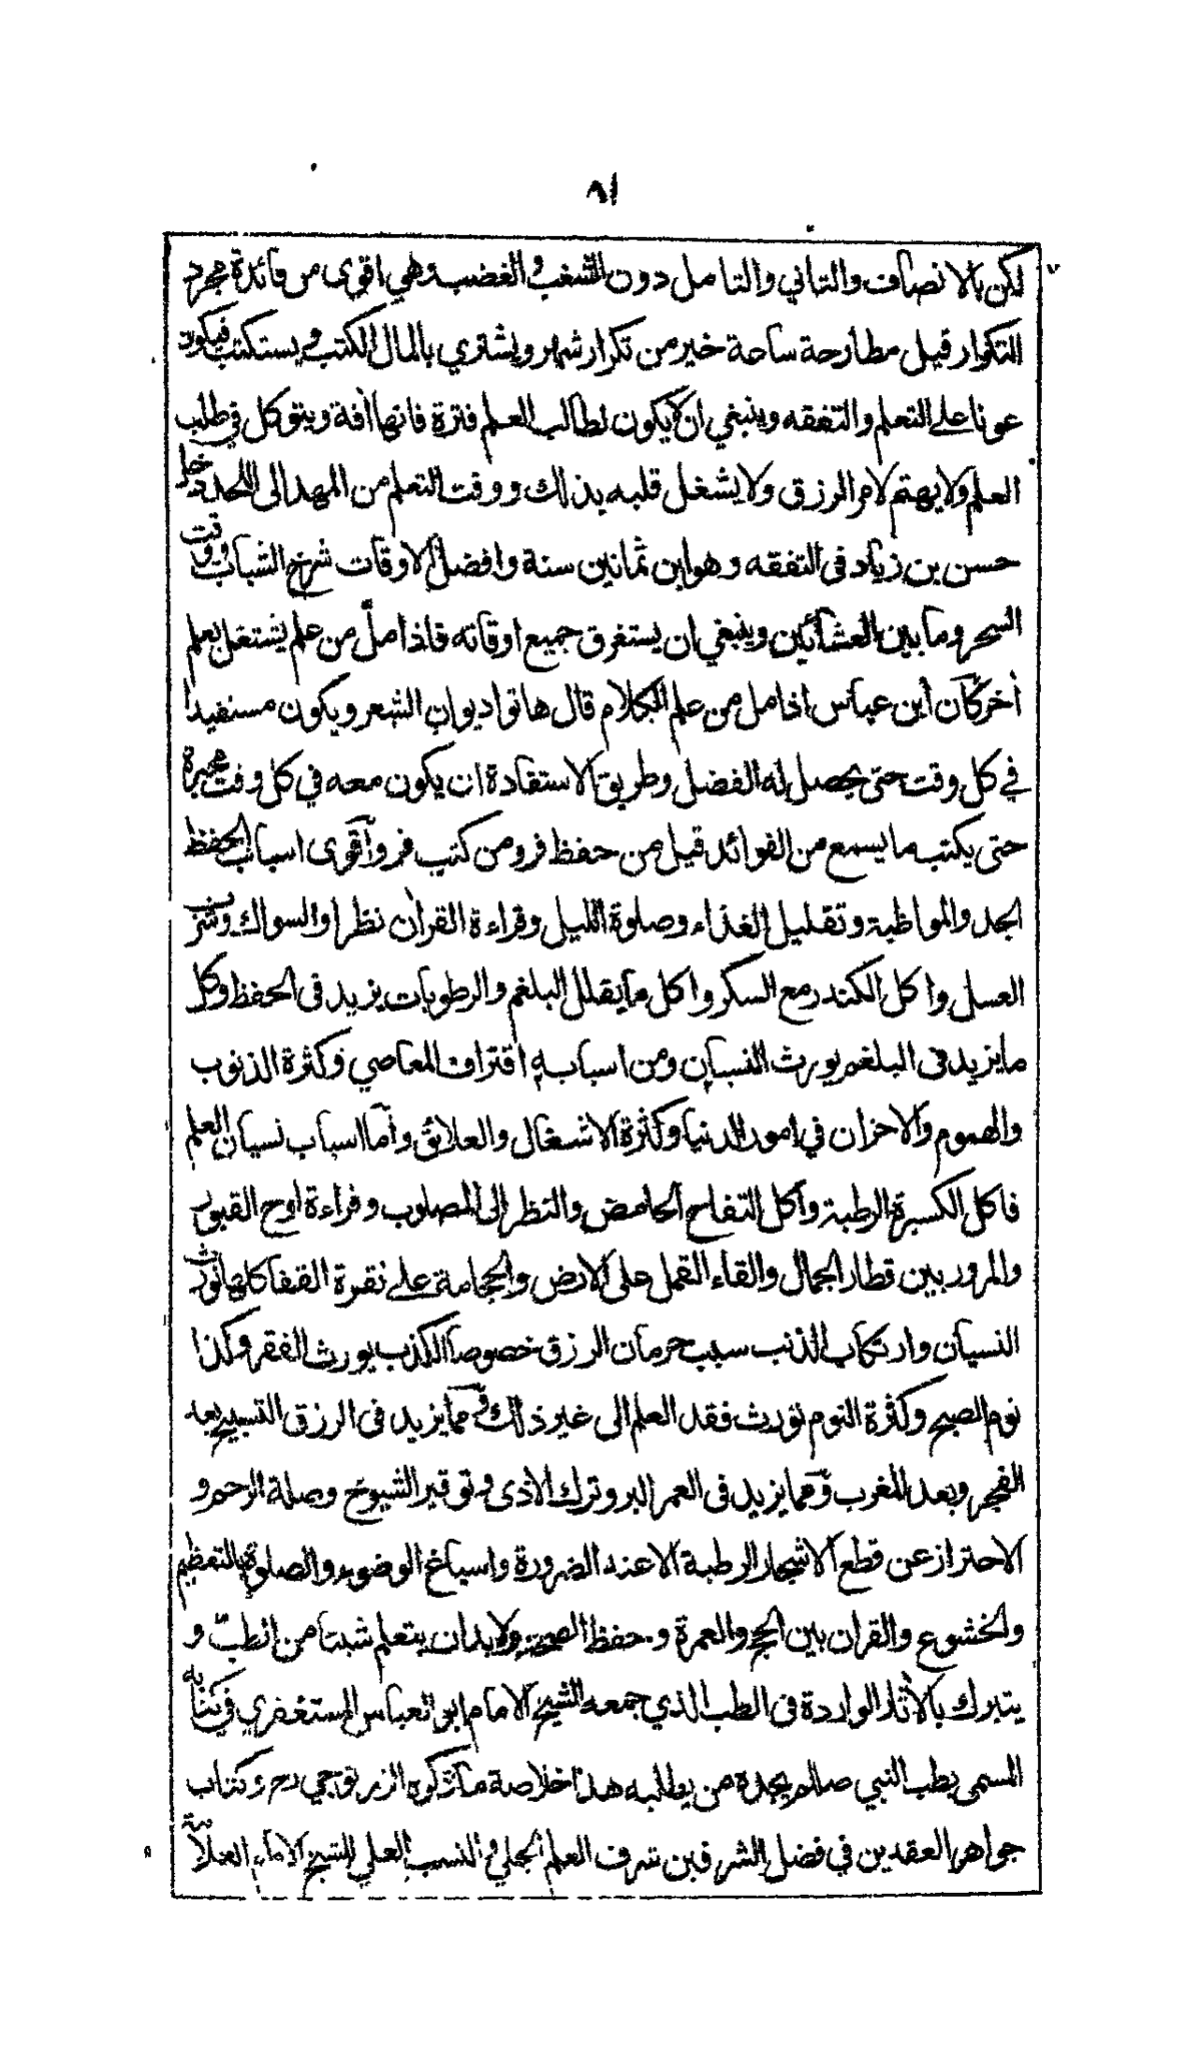 ٨١
لكن بالانصاف والتاني والتامل دون الشغب والغضب وهي اقوى من فائدة مجرد
التكرار قيل مطارحة ساعة خير من تكرار شهر ويشتري بالمال الكتب ويستكتب فيكون
عونا على التعلم والتفقه وينبغي ان لا يكون لطالب العلم فترة فانها أفة ويتوكل في طلب
العلم ولا يهتم لامر الرزق ولا يشغل قلبه بذلك ووقت التعلم من المهد الى اللحد دخل
حسن بن زياد فى التفقه وهو ابن ثمانين سنة وافضل الاوقات شرخ الشباب ووقت
السحر وما بين العشائين وينبغي ان يستغرق جميع اوقاته فاذا ملّ من علم يشتغل بعلم
أخر كان ابن عباس اذا مل من علم الكلام قال هاتوا ديوان الشعر ويكون مستفيدا
في كل وقت حتى يحصل له الفضل وطريق الاستفادة ان يكون معه في كل وقت محبرة
حتى يكتب ما يسمع من الفوائد قيل من حفظ فر ومن كتب قر وأقوى اسباب الحفظ
الجد والمواظبة وتقليل الغذاء وصلوة الليل وقراءة القران نظرا والسواك وشرب
العسل واكل الكندر مع السكر واكل ما يقلل البلغم والرطوبات يزيد فى الحفظ وكل
ما يزيد فى البلغم يورث النسيان ومن اسبابه اقتراف المعاصي وكثرة الذنوب
والهموم والاحزان في امور الدنيا وكثرة الاشغال والعلائق وأما اسباب نسيان العلم
فاكل الكسبرة الرطبة وأكل التفاح الحامض والنظر الى المصلوب وقراءة لوح القبور
والمرور بين قطار الجمال والقاء القمل على الارض والحجامة على نقرة القفا كلها تورث
النسيان وارتكاب الذنب سبب حرمان الرزق خصوصا الكذب يورث الفقر وكذا
نوم الصبح وكثرة النوم تورث فقد العلم الى غير ذلك ومما يزيد فى الرزق التسبيح بعد
الفجر وبعد المغرب ومما يزيد فى العمر البر وترك الاذى وتوقير الشيوخ وصلة الرحم و
الاحتراز عن قطع الاشجار الرطبة الا عند الضرورة واسباغ الوضوء والصلوة بالتعظيم
والخشوع والقران بين الحج والعمرة و حفظ الصحة ولا بد ان يتعلم شيئا من الطبّ و
يتبرك بالأثار الواردة فى الطب الذي جمعه الشيخ الامام ابو العباس المستغفري في كتابه
المسمى بطب النبي صلعم يجده من يطلبه هذا خلاصة ما ذكره الزرنوجي رح وكتاب
جواهر العقدين في فضل الشرفين شرف العلم الجلي والنسب العلي للشيخ الامام العلامة